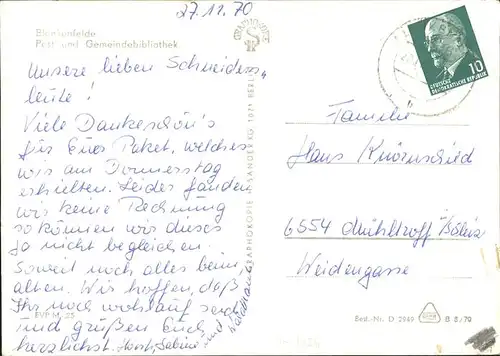 27.11.70
Blankenfelde
Post und Gemeindebibliothek
Unsere lieben Schneiders-
leute!
Viele Dankeschön's
für Euer Paket, welches
wir am Donnerstag
erhielten. Leider fanden
wir keine Rechnung
so können wir dieses
ja nicht begleichen.
Soweit noch alles beim
alten. Wir hoffen, daß
Ihr noch wohlauf seid
und grüßen Euch
herzlichst Horst, Sabine und
EVP M -,25
DEUTSCHE
DEMOKRATISCHE REPUBLIK
10
Familie
Hans Knörnschild
6554 Mühltroff
Weidengasse
Best.-Nr. D 2949
B 8/70